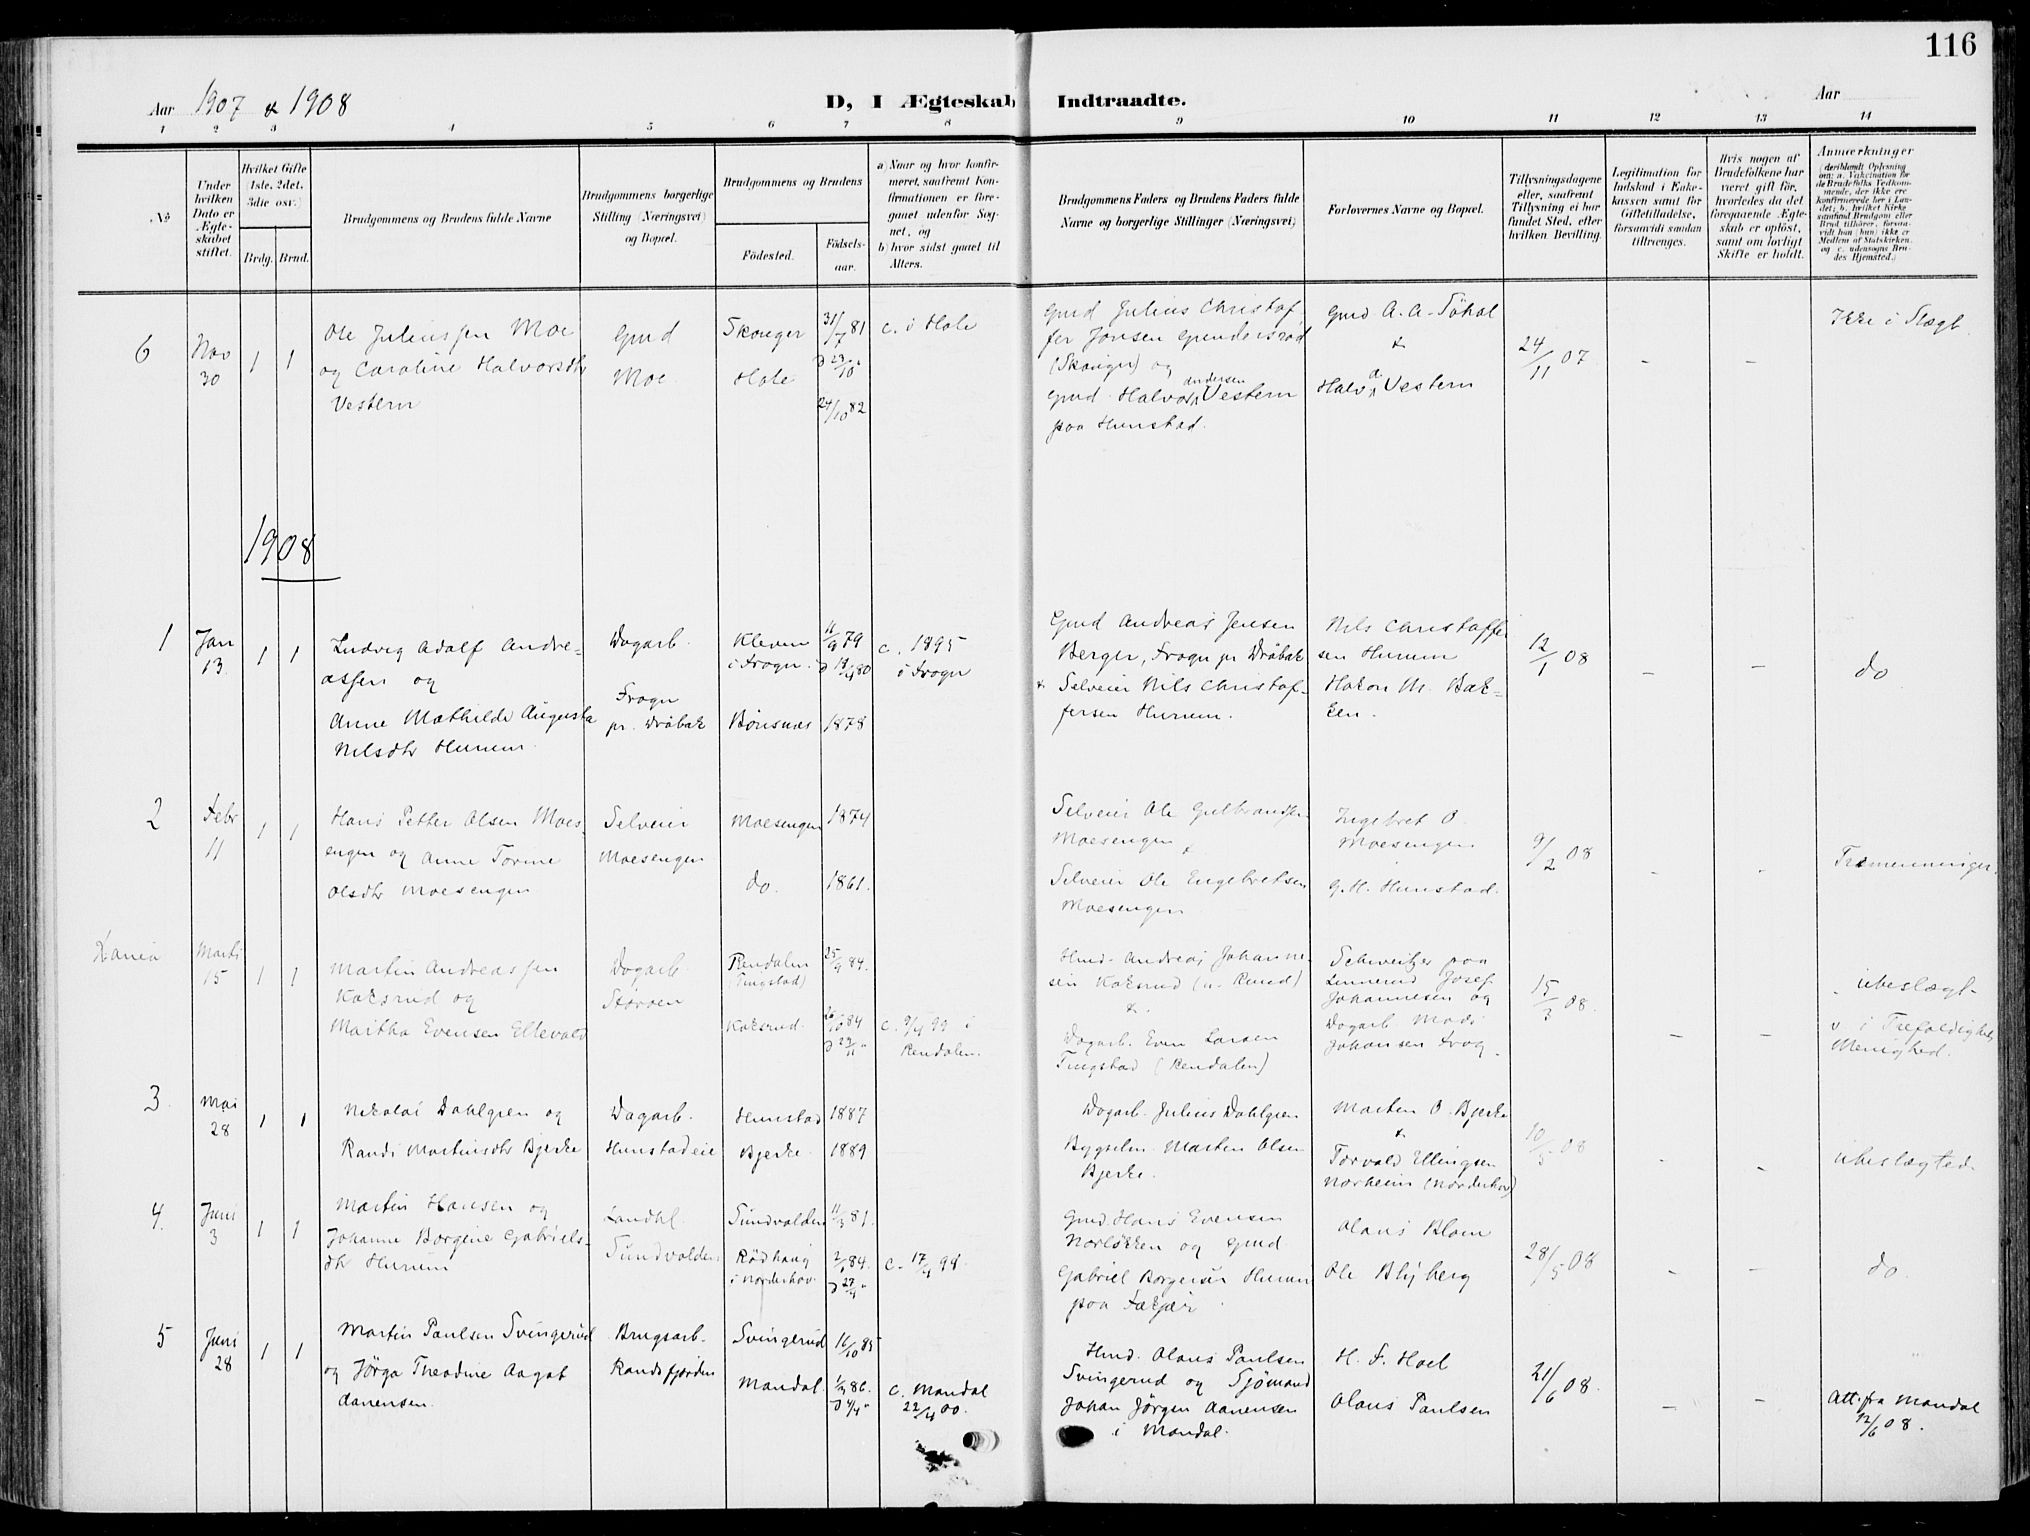 116
Aar 1907 & 1908
D, I Ægteskab Indtraadte.
Aar
1 2 3 4 5 6 7 8 9 10 11 12 13 14
No
Under hvilken Dato er Ægteskabet stiftet.
Hvilket Gifte (1ste, 2det, 3die osv.)
Brdg. Brud.
Brudgommens og Brudens fulde Navne
Brudgommens borgerlige Stilling (Næringsvei) og Bopæl.
Brudgommens og Brudens
Fødested.
Fødselsaar.
a) Naar og hvor konfirmeret, saafremt Konfirmationen er foregaaet udenfor Sognet, og
b) hvor sidst gaaet til Alters.
Brudgommens Faders og Brudens Faders fulde Navne og borgerlige Stillinger (Næringsvei)
Forlovernes Navne og Bopæl.
Tillysningsdagene eller, saafremt Tillysning ei har fundet Sted, efter hvilken Bevilling.
Legitimation for Indskud i Enkekassen samt for Giftetilladelse, forsaavidt saadan tiltrænges.
Hvis nogen af Brudefolkene har været gift før, hvorledes da det foregaaende Ægteskab er opløst, samt om lovligt Skifte er holdt.
Anmærkninger
6 Nov 30 1 1
Ole Juliussen Moe
og Caroline Halvorsdtr
Vestern
Gmd
Moe
Skouger
Hole
31/7 81
24/10 82
c. i Hole
Gmd Julius Christof-
fer Jonsen Gundersrød
(Skouger) og
Gmd. Halvor Andersen Vestern
paa Hunstad.
Gmd A. A. Søhol
&
Halv. A. Vestern
24/11 07
- -
Ikke i Slægt
1908
1 Jan 13. 1 1
Ludvig Adolf Andre-
assen og
Anne Mathilde Augusta
Nilsdtr Hurum.
Dagarb.
Frogn
pr. Drøbak
Kleven
i Frogn.
Bønsnæs
11/9 79
1878
c. 1895
i Frogn
Gmd Andreas Jensen
Berger, Frogn pr Drøbak
& Selveier Nils Christof-
fersen Hurum.
Nils Christoffer
sen Hurum
Hakon M. Bak-
ken.
12/1 08
- -
do
2 Febr 11 1 1
Hans Petter Olsen Moes-
engen og Anne Torine
Olsdtr Moesengen
Selveier
Moesengen
Moesengen
do.
1874
1861.
Selveier Ole Gulbrandsen
Moesengen &
Selveier Ole Engebretsen
Moesengen
Ingebret O.
Moesengen
G. H. Hunstad.
9/2 08
- -
Tremenninger.
Marts 15 1 1
Martin Andreassen
Koksrud og
Martha Evensen Ellevold
Dagarb.
Storøen
Rendalen
(Tingstad)
Koksrud.
25/9 84.
c. 9/4 99 i
Rendalen.
Hmd. Andreas Johanne-
sen Koksrud
&.
Dagarb. Even Larsen
Tingstad (Rendalen)
Schweitzer paa
Linnerud Josef
Johannesen og
Dagarb Mads
Johansen Frog.
15/3 08.
- -
ubeslægt-
v. i Trefoldigheds
Menighed.
3. Mai 28 1 1
Nikolai Dahlgren og
Randi Martinsdtr Bjerke
Dagarb.
Hunstadeie
Hunstad
Bjerke.
1887
1889
Dagarb. Julius Dahlgren
Bygselm. Marten Olsen
Bjerke.
Marten O. Bjerke
&
Torvald Ellingsen
Norheim (Norderhov)
10/5 08
- -
ubeslægted.
4. Juni 3 1 1
Martin Hansen og
Johanne Borgine Gabriels-
dtr Hurum
Landhl
Sundvolden
Sundvolden
Rødhaug
i Norderhov.
11/3 81.
c. 17/4 98
Gmd. Hans Evensen
Norløkken og Gmd
Gabriel Borgersen Hurum
paa Fækjær.
Olaus Blom
Ole Blyberg
28/5 08
- -
do.
5 Juni 28 1 1
Martin Paulsen Svingerud
og Jørga Theodine Aagot
Aanensen.
Brugsarb.
Randsfjorden
Svingerud
Mandal.
16/10 85
1/3 86.
c. Mandal
22/4 00.
Hmd. Olaus Paulsen
Svingerud og Sjømand
Johan Jørgen Aanensen
i Mandal.
H. F. Hoel
Olaus Paulsen
21/6 08.
- -
Att. fra Mandal
12/6 08.